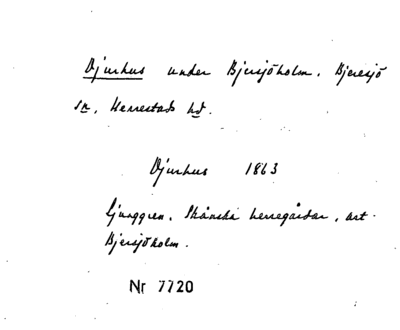 Djurhus under Bjersjöholm. Bjeresjö
sn, Herrestads hd.
Djurhus 1863
Ljunggren, Skånska herregårdar, art.
Bjersjöholm.
Nr 7720